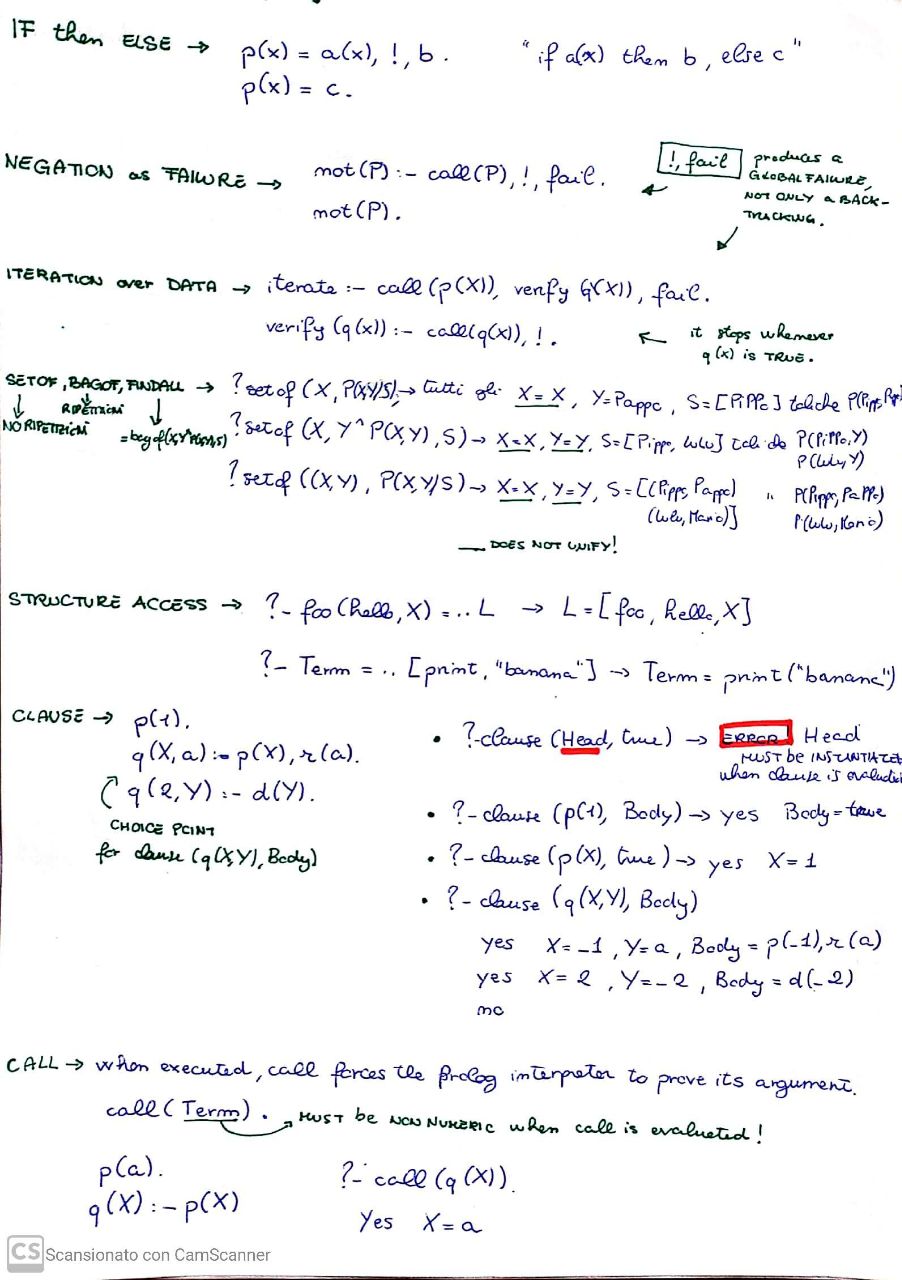 IF then ELSE → p(x) = a(x), !, b. "if a(x) then b, else c"
p(x) = c.
NEGATION as FAILURE → not(P) :- call(P), !, fail.
not(P).
!, fail produces a
GLOBAL FAILURE,
NOT ONLY a BACK-
TRACKING.
ITERATION over DATA → iterate :- call (p(X)), verify (q(X)), fail.
verify (q(x)) :- call(q(x)), !.
← it stops whenever
q(x) is TRUE.
SETOF, BAGOF, FINDALL → ? setof (X, P(X,Y),S) → tutti gli X = X, Y=Pappo, S=[PiPPo] tal che P(Pippo,
RIPETIZIONI
NO RIPETIZIONI
=bagof(X,Y^P(X,Y),S)
? setof (X, Y^P(X,Y), S) → X=X, Y=Y, S=[Pippo, Lulu] tali che P(PiPPo,Y)
P(Lulu,Y)
? setof ((X,Y), P(X,Y),S) → X=X, Y=Y, S=[(Pippo, Pappo) " P(Pippo, PaPPo)
(Lulu, Mario)] P(Lulu, Mario)
__ DOES NOT UNIFY!
STRUCTURE ACCESS → ?- foo(hello, X) =.. L → L = [foo, hello, X]
?- Term =.. [print, "banana"] → Term = print("banana")
CLAUSE → p(1).
q(X,a) :- p(X), r(a).
q(2,Y) :- d(Y).
CHOICE POINT
for clause (q(X,Y), Body)
• ?-clause (Head, true) → ERROR! Head
MUST be INSTANTIATED
when clause is evaluated
• ?- clause (p(1), Body) → yes Body = true
• ?- clause (p(X), true) → yes X = 1
• ?- clause (q(X,Y), Body)
yes X=_1, Y=a, Body = p(_1), r(a)
yes X=2, Y=_2, Body = d(_2)
no
CALL → when executed, call forces the prolog interpreter to prove its argument.
call (Term). → MUST be NON NUMERIC when call is evalueted!
p(a). ?- call (q(X)).
q(X) :- p(X) Yes X=a
CS Scansionato con CamScanner